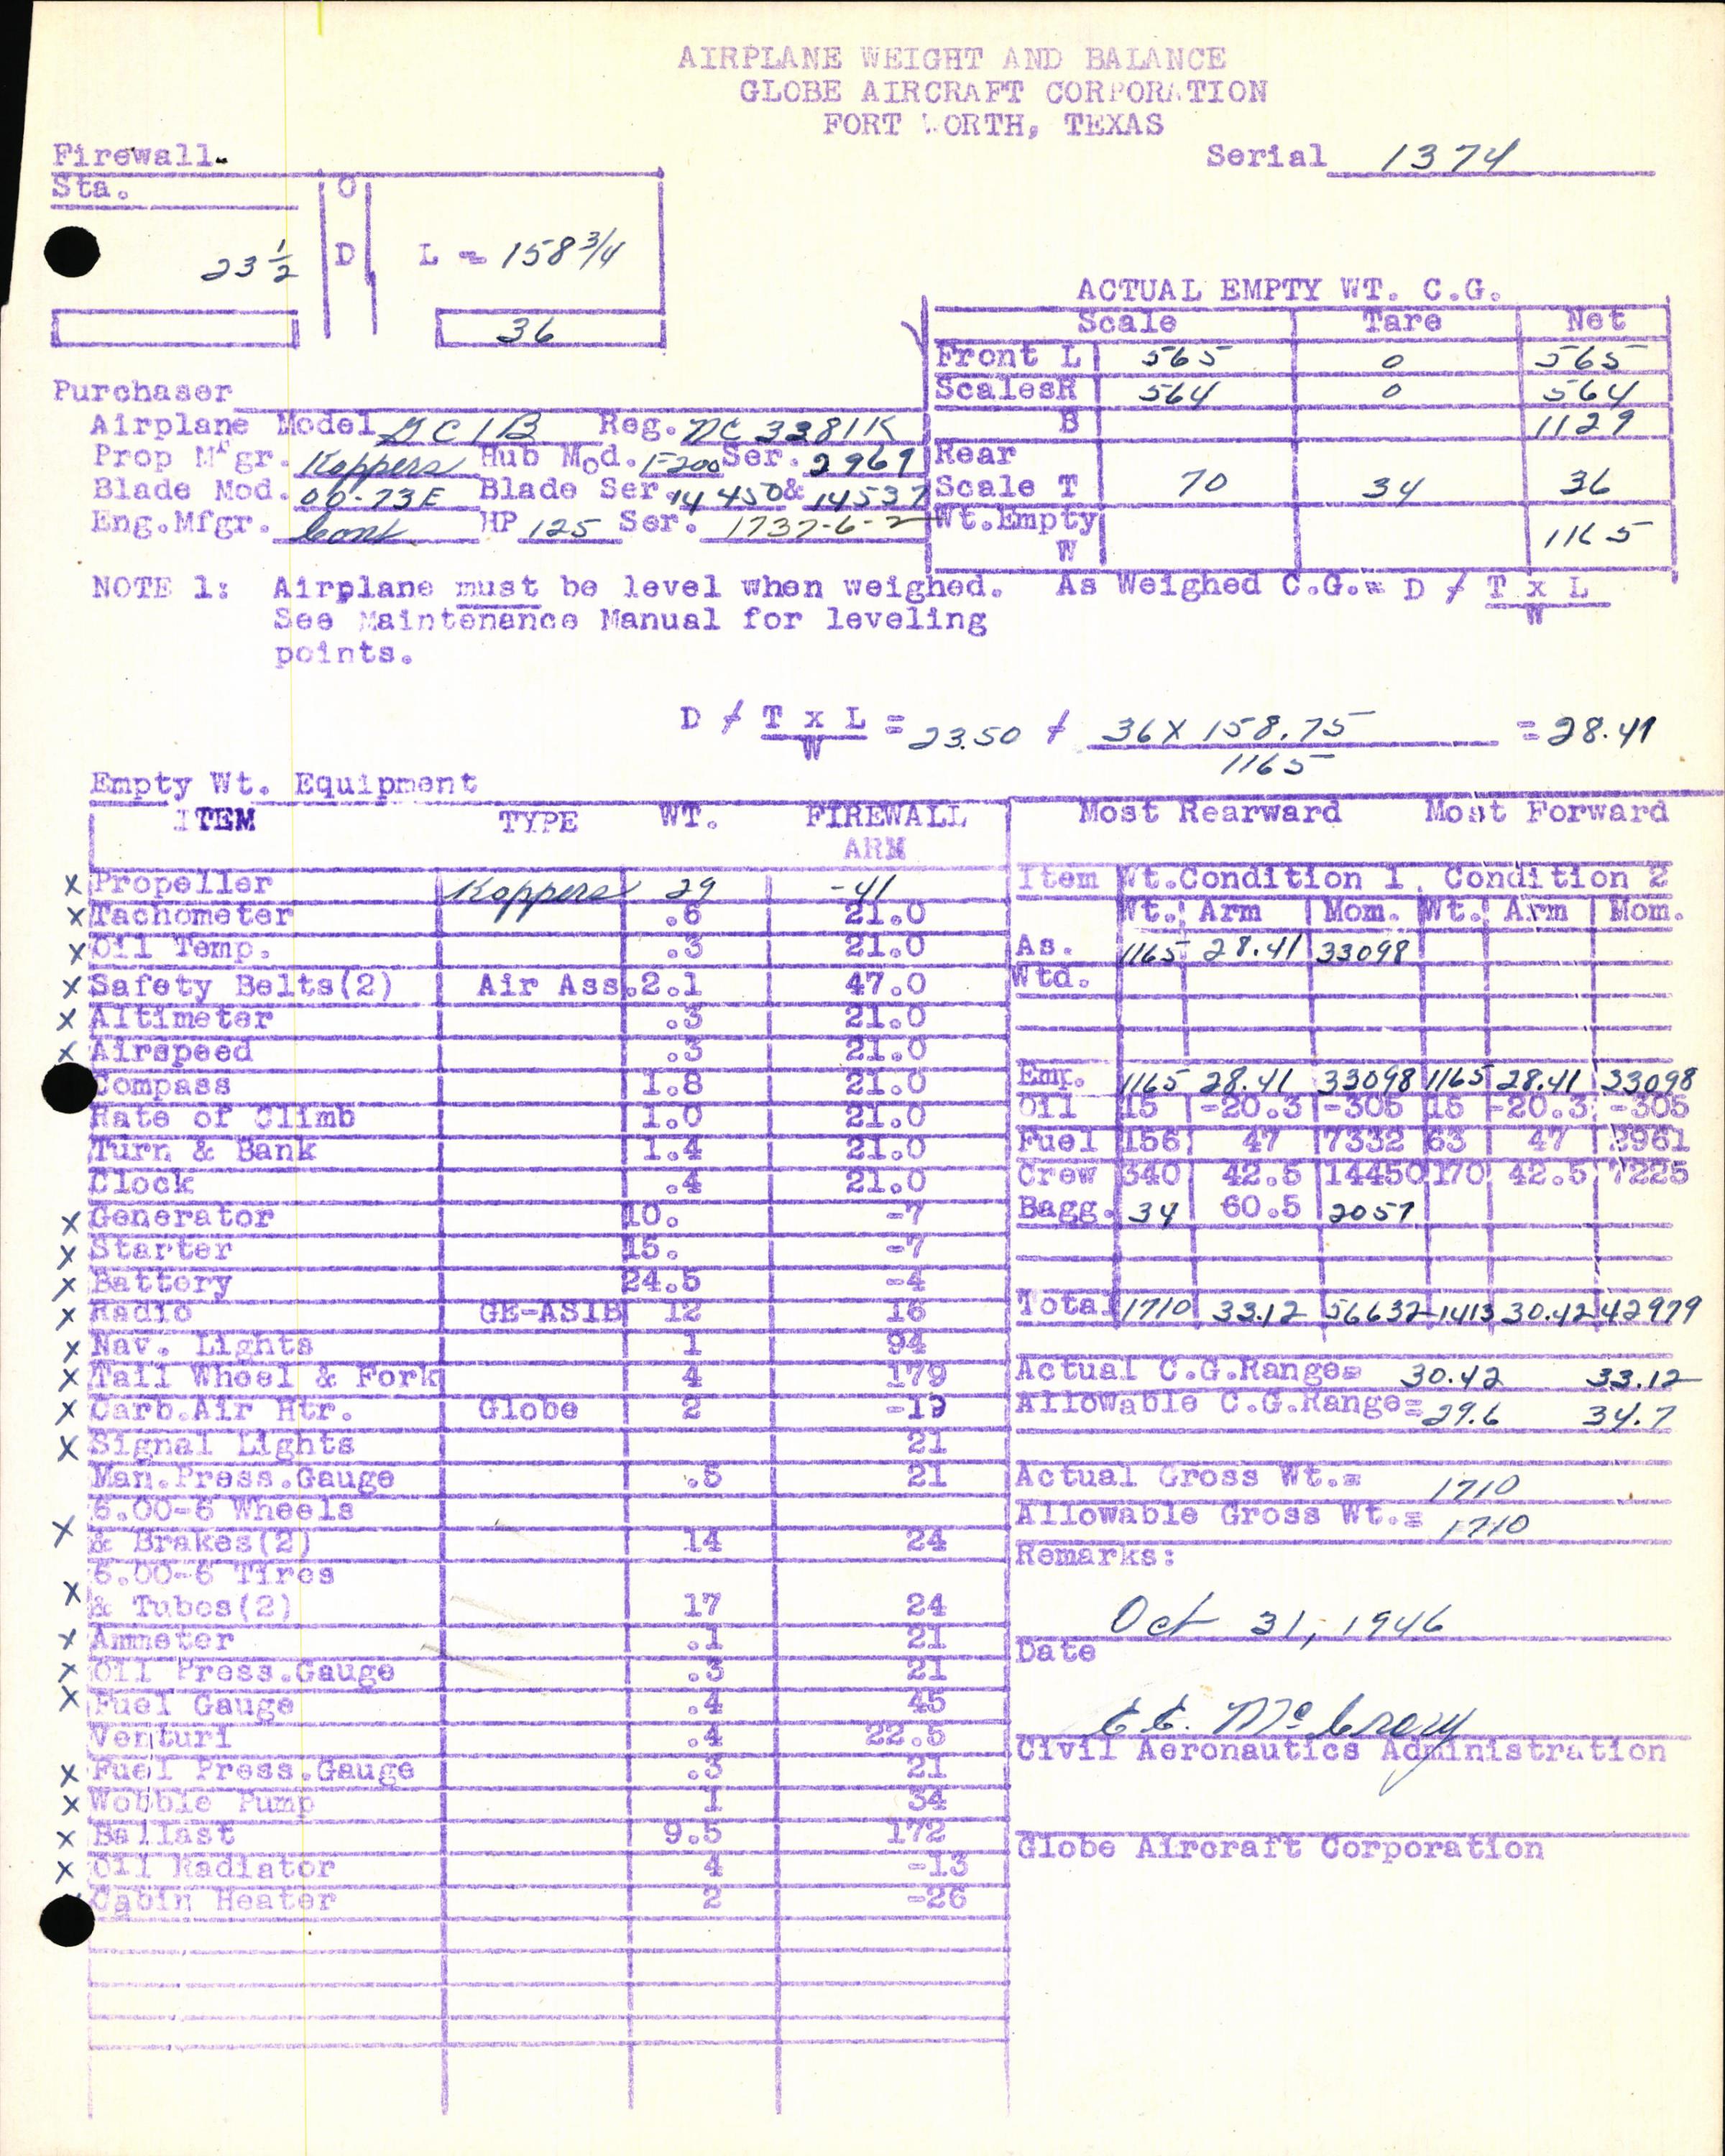 AIRPLANE WEIGHT AND BALANCE
GLOBE AIRCRAFT CORPORATION
FORT WORTH, TEXAS
Serial 1374
Firewall
Sta. O
23 1/2 D L = 158 3/4
36
ACTUAL EMPTY WT. C.G.
Scale Tare Net
Front L 565 0 565
Scales R 564 0 564
B 1129
Rear
Scale T 70 34 36
Wt.Empty
W 1165
Purchaser
Airplane Model GC1B Reg. NC 3381K
Prop Mfgr. Koppers Hub Mod. F200 Ser. 2969
Blade Mod. 00-73E Blade Ser. 14450 & 14537
Eng.Mfgr. Cont HP 125 Ser. 1737-6-2
NOTE 1: Airplane must be level when weighed.
See Maintenance Manual for leveling
points.
As Weighed C.G. = D ≠ T x L
W
D ≠ T x L = 23.50 + 36 X 158.75 = 28.41
W 1165
Empty Wt. Equipment
ITEM TYPE WT. FIREWALL
ARM
X Propeller Koppers 29 -41
X Tachometer .6 21.0
X Oil Temp. .3 21.0
X Safety Belts(2) Air Ass. 2.1 47.0
X Altimeter .3 21.0
X Airspeed .3 21.0
Compass 1.8 21.0
Rate of Climb 1.0 21.0
Turn & Bank 1.4 21.0
Clock .4 21.0
X Generator 10. -7
X Starter 15. -7
X Battery 24.5 -4
X Radio GE-AS1B 12 16
X Nav. Lights 1 94
X Tail Wheel & Fork 4 179
X Carb.Air Htr. Globe 2 -19
X Signal Lights 21
Man.Press.Gauge .5 21
6.00-6 Wheels
X & Brakes(2) 14 24
6.00-6 Tires
X & Tubes(2) 17 24
X Ammeter .1 21
X Oil Press.Gauge .3 21
X Fuel Gauge .4 45
Venturi .4 22.5
X Fuel Press.Gauge .3 21
X Wobble Pump 1 34
X Ballast 9.5 172
X Oil Radiator 4 -13
Cabin Heater 2 -26
Most Rearward Most Forward
Item Wt.Condition 1 Condition 2
Wt. Arm Mom. Wt. Arm Mom.
As. 1165 28.41 33098
Wtd.
Emp. 1165 28.41 33098 1165 28.41 33098
Oil 15 -20.3 -305 15 -20.3 -305
Fuel 156 47 7332 63 47 2961
Crew 340 42.5 14450 170 42.5 7225
Bagg. 34 60.5 2057
Total 1710 33.12 56632 1413 30.42 42979
Actual C.G.Range= 30.42 33.12
Allowable C.G.Range= 29.6 34.7
Actual Gross Wt.= 1710
Allowable Gross Wt.= 1710
Remarks:
Oct 31, 1946
Date
E.E. McCrory
Civil Aeronautics Administration
Globe Aircraft Corporation